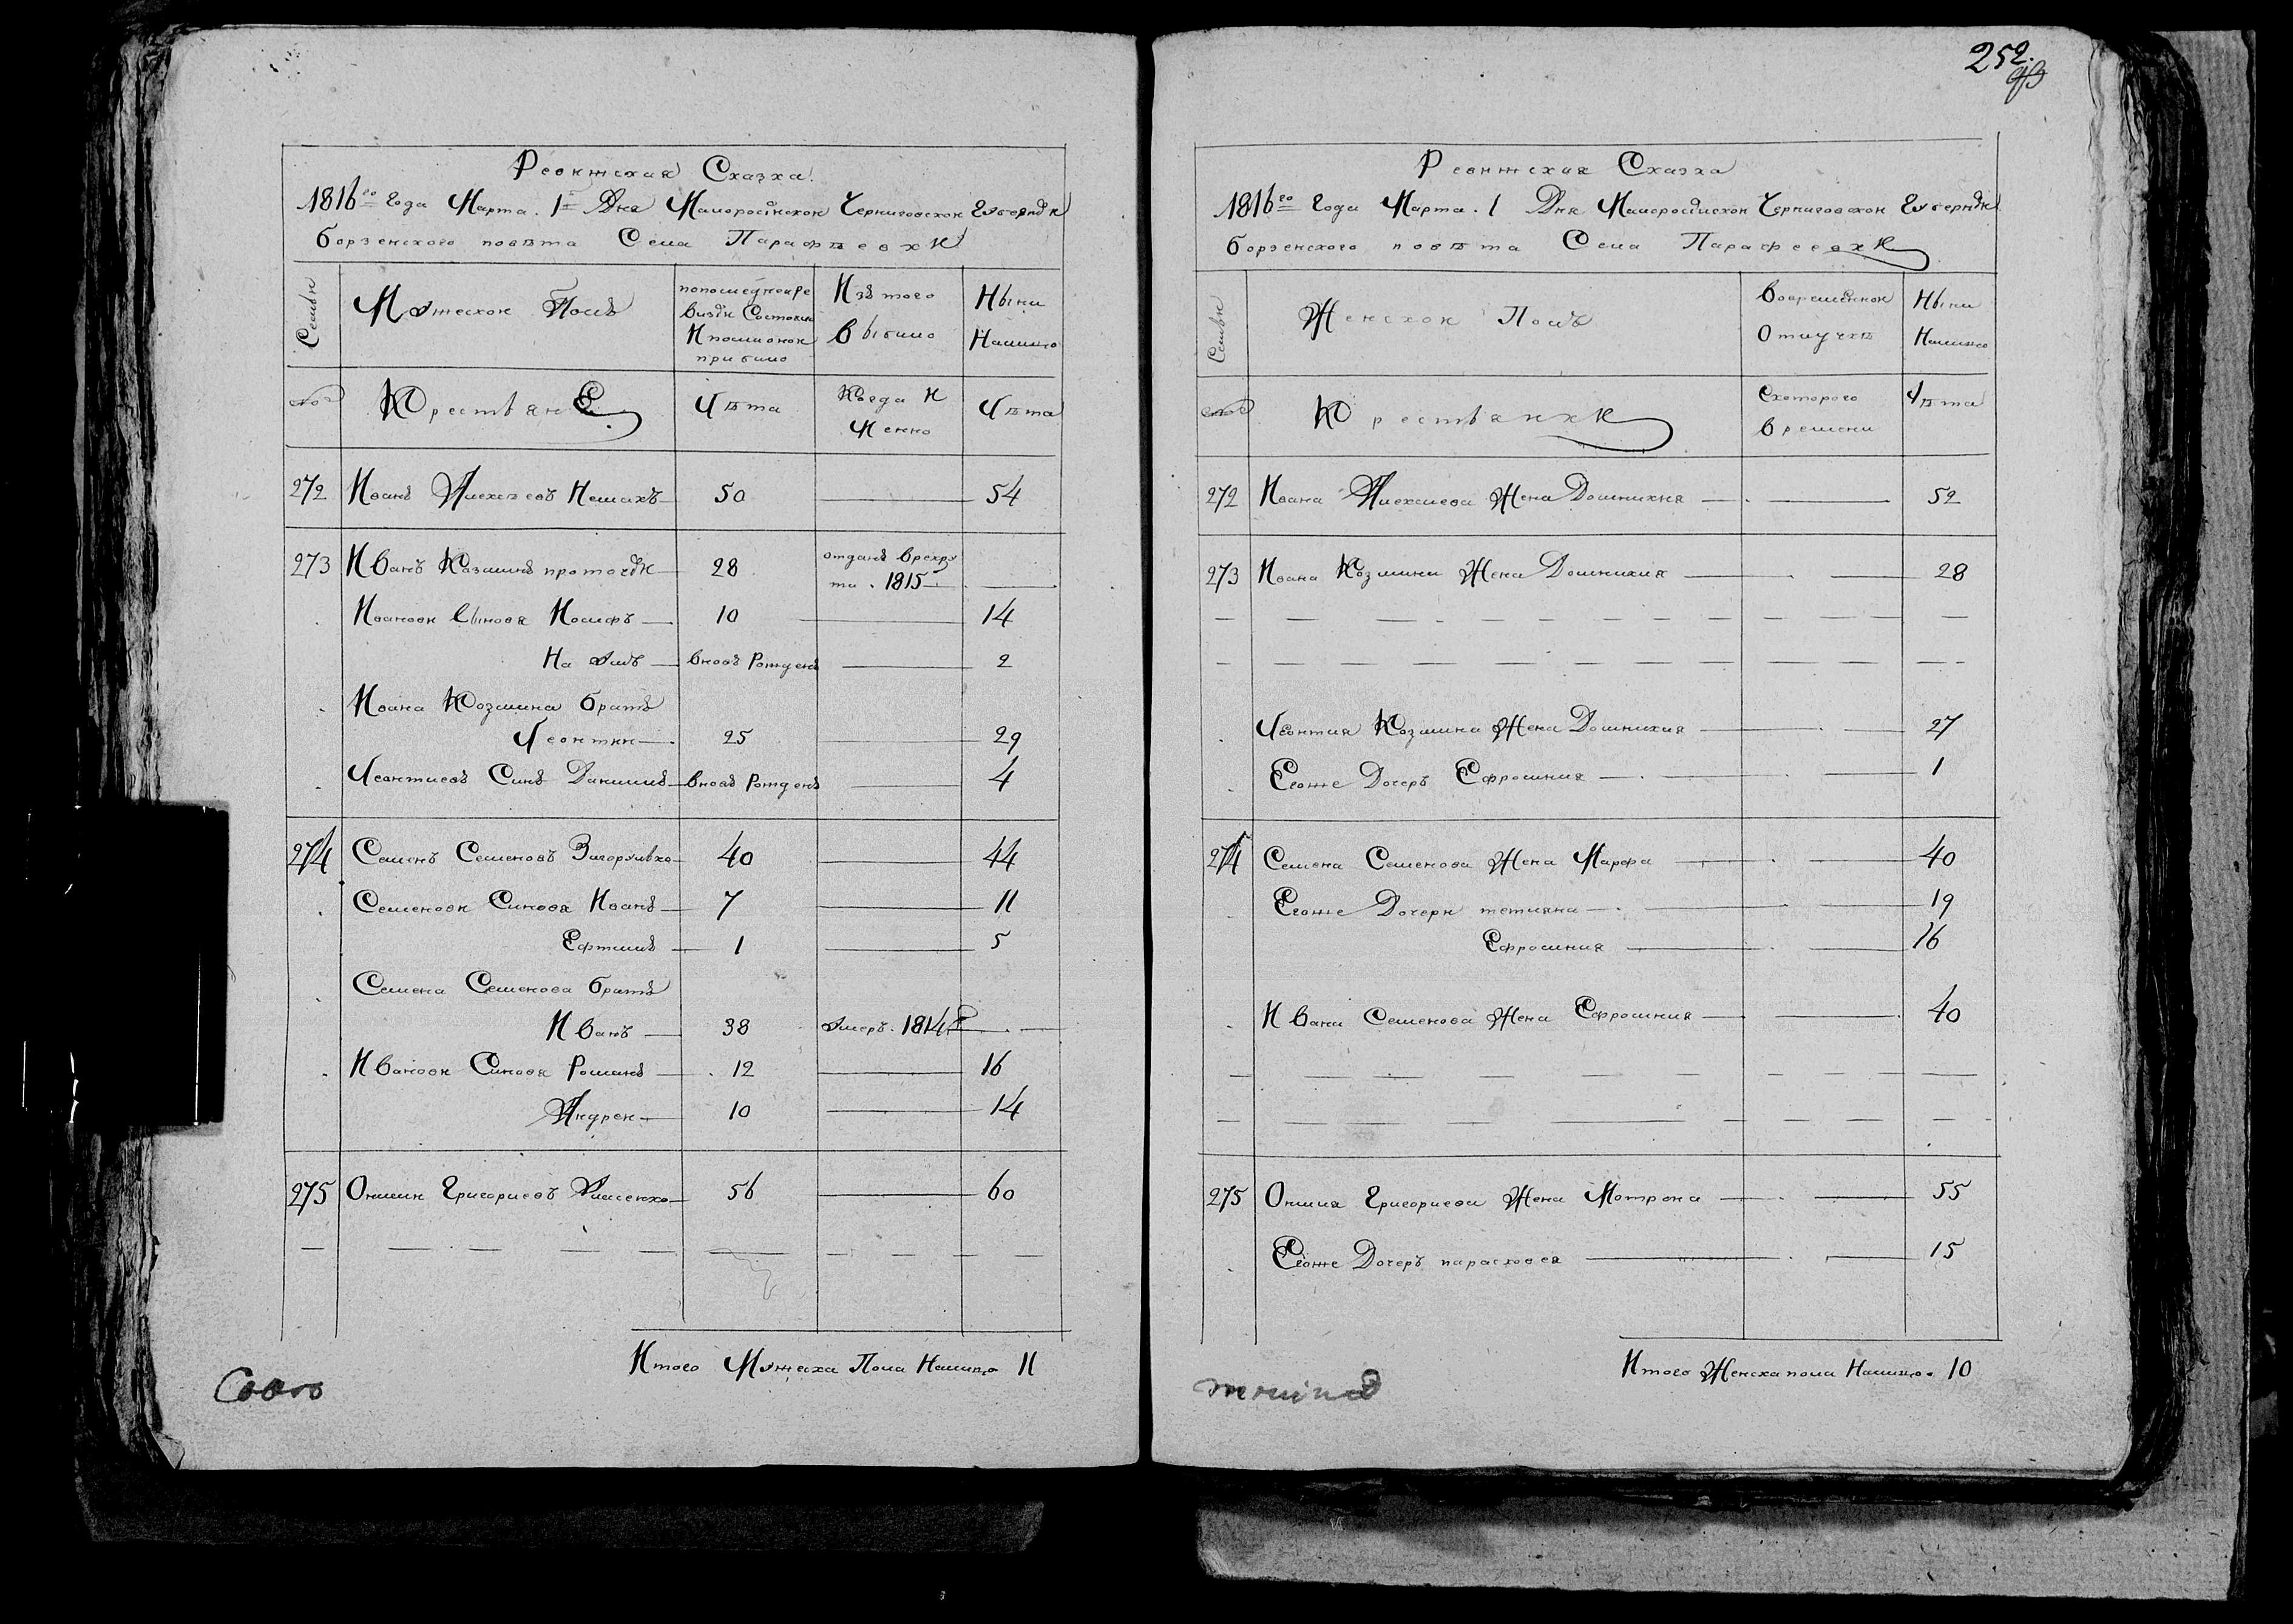 Ревижская Сказка.
1816го года Марта. 1го Дня Малоросійской Черниговской Губерніи
борзенского повѣта Села Парафѣевки
Семьи
Мужеской Полъ
попоследней ре
визіи Состояло
И после оной
прибило
Изъ того
Выбыло
Ныни
Налицо
№
Крестьяне
Лѣта
Когда И
Менно
Лѣта
272 Иванъ Алексѣевъ Немахъ 50 54
273 Иванъ Козминъ проточій 28 отданъ Врекру
ти. 1815
Ивановы Сыновя Иосифъ 10 14
Наумъ вновь Рожденъ 2
Ивана Козмина братъ
Леонтий 25 29
Леонтиевъ Синъ Данилъ вновь Рожденъ 4
274 Семенъ Семеновъ Загорулько 40 44
Семеновы Синовя Иванъ 7 11
Ефтимъ 1 5
Семена Семенова братъ
Иванъ 38 Умеръ. 1814
Ивановы Синовя Романъ 12 16
Андрей 10 14
275 Онисим Григориевъ 56 60
Итого Мужеска Пола Налицо 11
252
Ревижская Сказка
1816го года Марта. 1 Дня Малоросійской Черниговской Губерніи
борзенского повѣта Села Парафеевки
Семьи
Женской Полъ
Вовременной
Отлучкѣ
Ныни
Налицо
№
Крестьянки
Скоторого
времени
Лѣта
272 Ивана Алексеева Жена Домникия 52
273 Ивана Козмина Жена Домникия 28
Леонтия Козмина Жена Домникия 27
Егоже Дочеръ Ефросиния 1
274 Семена Семенова Жена Марфа 40
Егоже Дочери тетияна 19
Ефросиния 16
Ивана Семенова Жена Ефросиния 40
275 Онисия Григориева Жена Мотрона 55
Егоже Дочеръ парасковея 15
Итого Женска пола Налицо. 10